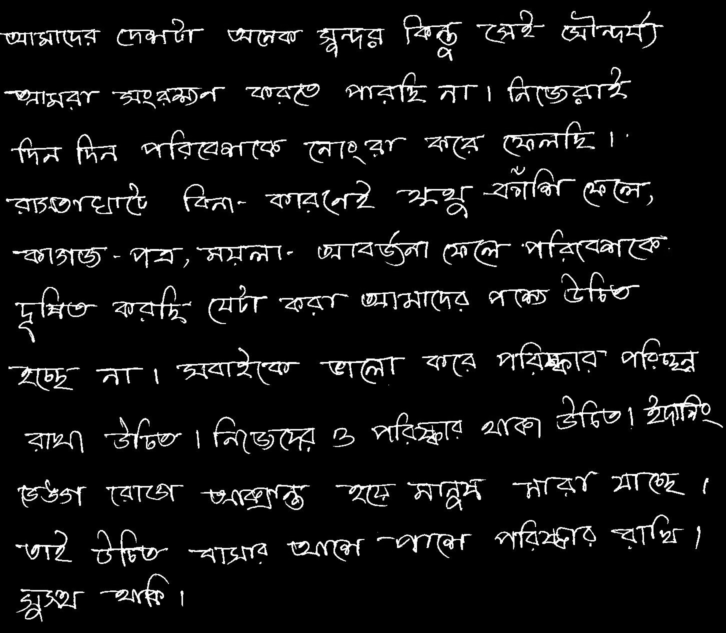 আমাদের দেশটা অনেক সুন্দর কিন্তু সেই সৌন্দর্য্য
আমরা সংরক্ষন করতে পারছি না। নিজেরাই
দিন দিন পরিবেশকে নোংরা করে ফেলছি।
রাস্তাঘাটে বিনা- কারনেই থুথু কাঁশি ফেলে,
কাগজ - পত্র, ময়লা- আবর্জনা ফেলে পরিবেশকে
দূষিত করছি যেটা করা আমাদের পক্ষে উচিত
হচ্ছে না। সবাইকে ভালো করে পরিষ্কার পরিচ্ছন্ন
রাখা উচিত। নিজেদের ও পরিষ্কার থাকা উচিত। ইদানিং
ডেঙ্গু রোগে আক্রান্ত হয়ে মানুষ মারা যাচ্ছে।
তাই উচিত বাসার আশে -পাশে পরিষ্কার রাখি।
সুস্থ থাকি।